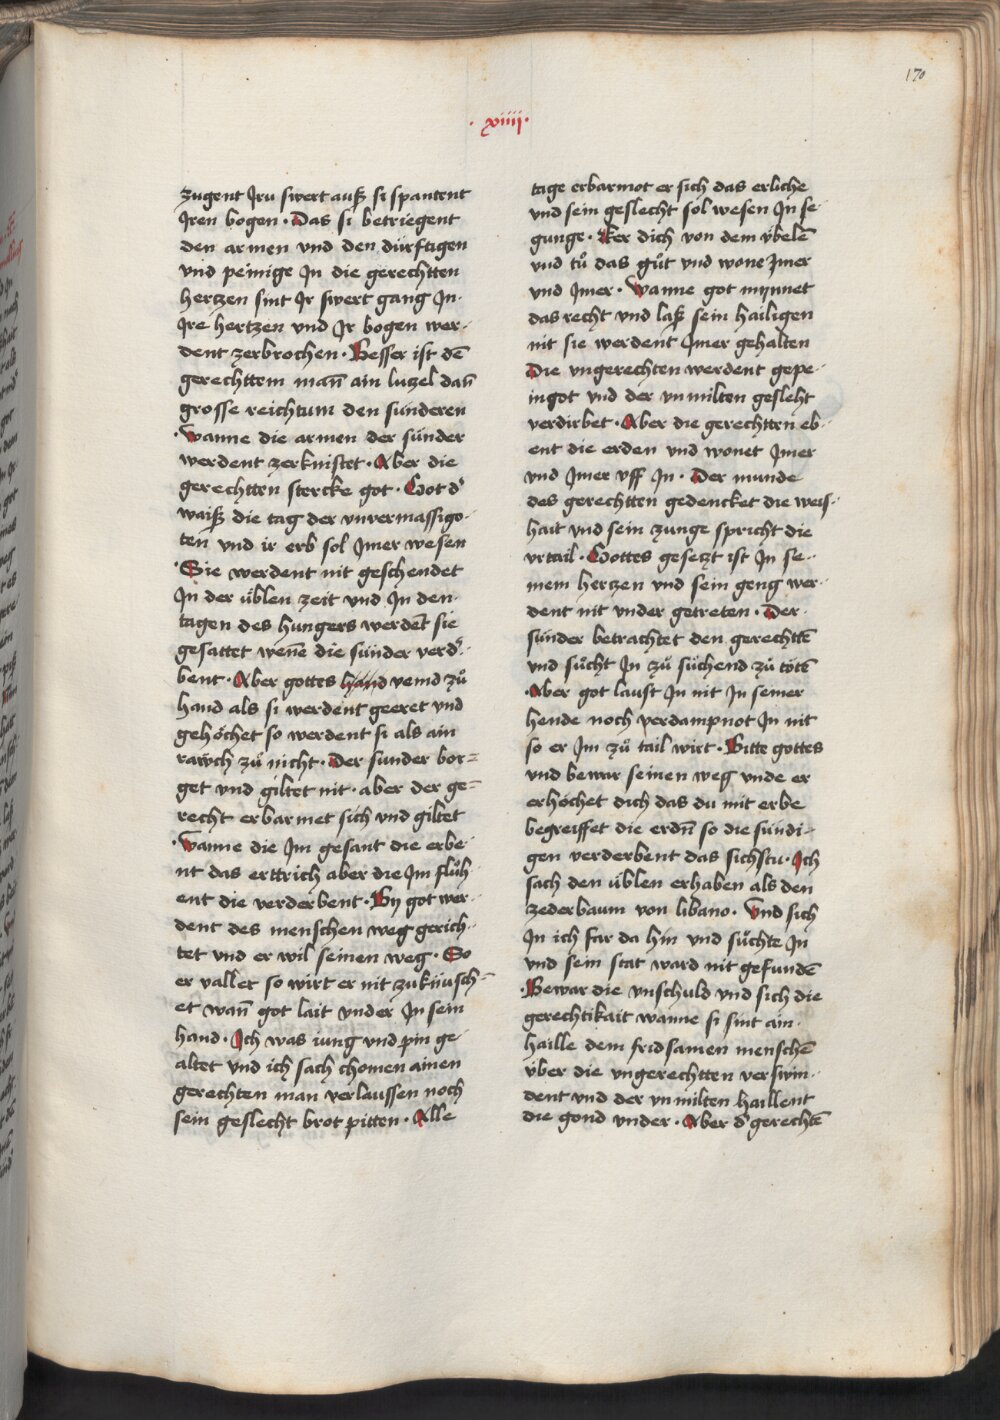 170
· xiiij ·
zugent Jru swert auß si spantent
Jren bogen · Das si betriegent
den armen vnd den dürftigen
vnd peinige Jn die gerechtten
hertzen sint Jr swert gang Jn-
Jre hertzen vnd Jr bogen wer-
dent zerbrochen · Besser ist dē
gerechttem man̄ ain luzel dan̄
grosse reichtum den sünderen
· Wanne die armen der sünder
werdent zerknistet · Aber die
gerechtten stercke got · Got d᷑
waiß die tag der vnvermassigo-
ten vnd ir erb sol Jmer wesen
· Sie werdent nit geschendet
Jn der üblen zeit vnd Jn den-
tagen des hungers werdēt sie
gesattet wenē die sünder verd᷑-
bent · Aber gottes hand veind zů
hand als si werdent geeret vnd
gehöchet so werdent si als ain
rawch zů nicht · Der sunder bor=
get vnd giltet nit · aber der ge=
recht erbarmet sich vnd giltet
· Wanne die Jm gesant die erbe-
nt das erttrich aber die Jm flůh-
ent die verderbent · By got wer-
dent des menschen weg gerich-
tet vnd er wil seinen weg · So
er vallet so wirt er nit zuknüsch-
et wan̄ got lait vnder Jn sein
hand · Jch was iung vnd pin ge-
altet vnd ich sach chomen ainen
gerechten man verlaussen noch
sein geslecht brot pitten · Alle
tage erbarmot er sich das erliche
vnd sein geslecht sol wesen Jn se-
gunge · Ker dich von dem vbelē
vnd tů das gůt vnd wone Jmer
vnd Jmer · Wanne got mynnet
das recht vnd laß sein hailigen
nit sie werdent Jmer gehalten
Die vngerechten werdent gepe-
ingot vnd der vnmilten gesleht
verdirbet · Aber die gerechtten eb-
ent die erden vnd wonet Jmer
vnd Jmer vff Jn · Der munde
des gerechtten gedencket die weis-
hait vnd sein zunge spricht die
vrtail · Gottes gesetzt ist Jn se-
inem hertzen vnd sein geng wer-
dent nit vnder getreten · Der
sünder betrachtet den gerechttē
vnd sůcht Jn zů süchend zů tötē
· Aber got laust Jn nit Jn seiner
hende noch verdampnot Jn nit
so er Jm zů tail wirt · Bitte gottes
vnd bewar seinen weg vnde er
erhöchet dich das du mit erbe
begreiffet die erdn̄ so die sündi-
gen verderbent das sichstu · Jch
sach den üblen erhaben als den
zederbaum von libano · Vnd sich
Jn ich far da hin vnd sůchte Jn
vnd sein stat ward nit gefundē
· Bewar die vnschuld vnd sich die
gerechtikait wanne si sint ain-
haille dem fridsamen menschē
über die vngerechtten verswin-
dent vnd der vnmilten haillent
die gond vnder · Aber d᷑ gerechtē